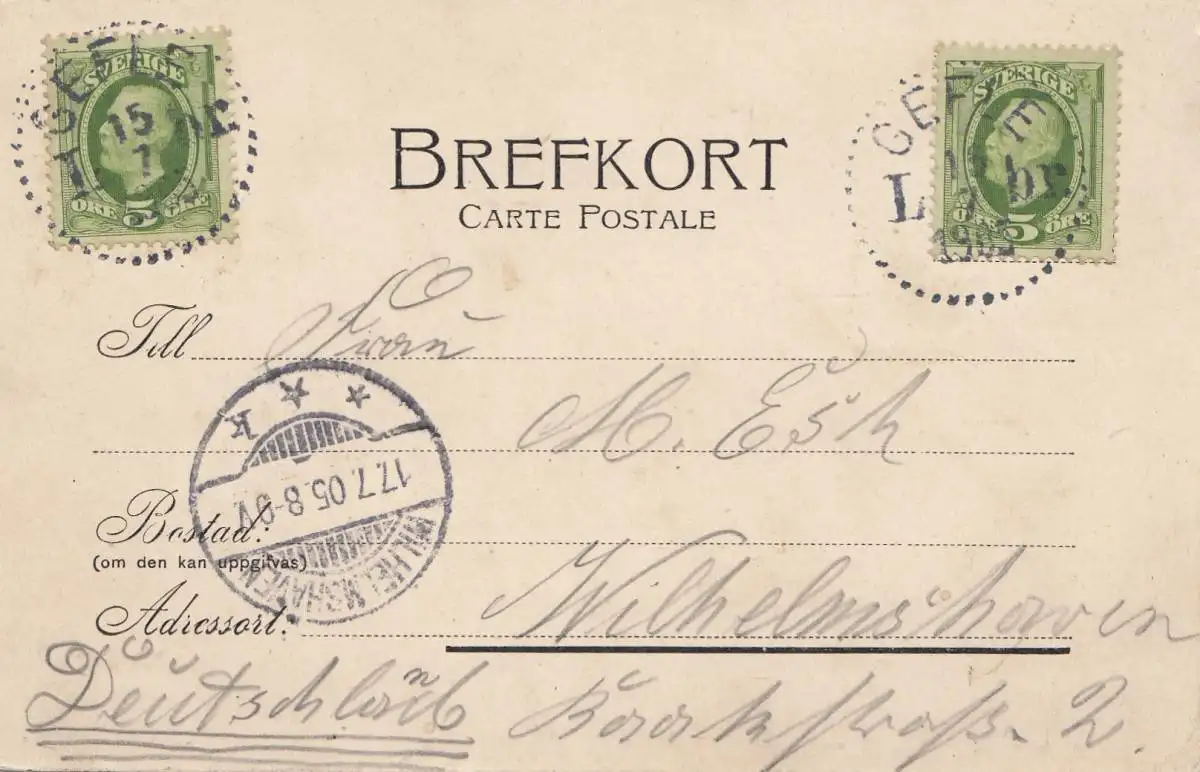 GEFLE
15
7
L br.
SVERIGE
ÖRE 5 ÖRE
GEFLE
L br.
7
1905
SVERIGE
ÖRE 5 ÖRE
BREFKORT
CARTE POSTALE
Till Frau
M. Esh
Bostad:
(om den kan uppgifvas)
Adressort: Wilhelmshaven
Deutschland
2.
WILHELMSHAVEN
17.7.05.8-9V.
* * k